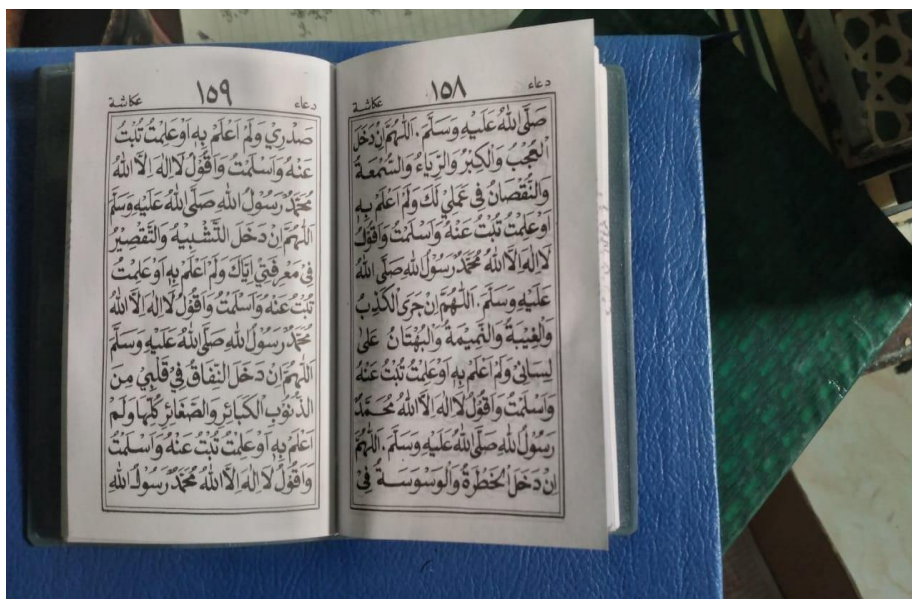 دعاء ١٥٨ عكاشة
صَلَّى اللهُ عَلَيْهِ وَسَلَّمَ. اَللّٰهُمَّ اِنْ دَخَلَ
الْعُجْبُ وَالْكِبْرُ وَالرِّيَاءُ وَالسُّمْعَةُ
وَالنُّقْصَانُ فِى عَمَلِيْ لَكَ وَلَمْ اَعْلَمْ بِهِ
اَوْعَلِمْتُ تُبْتُ عَنْهُ وَاَسْلَمْتُ وَاَقُوْلُ
لَااِلٰهَ اِلَّااللهُ مُحَمَّدٌ رَسُوْلُ اللهِ صَلَّى اللهُ
عَلَيْهِ وَسَلَّمَ. اَللّٰهُمَّ اِنْ جَرَى الْكَذِبُ
وَالْغِيْبَةُ وَالنَّمِيْمَةُ وَالْبُهْتَانُ عَلَى
لِسَانِىْ وَلَمْ اَعْلَمْ بِهِ اَوْعَلِمْتُ تُبْتُ عَنْهُ
وَاَسْلَمْتُ وَاَقُوْلُ لَااِلٰهَ اِلَّااللهُ مُحَمَّدٌ
رَسُوْلُ اللهِ صَلَّى اللهُ عَلَيْهِ وَسَلَّمَ. اَللّٰهُمَّ
اِنْ دَخَلَ الْخَطْرَةُ وَالْوَسْوَسَةُ فِيْ
دعاء ١٥٩ عكاشة
صَدْرِيْ وَلَمْ اَعْلَمْ بِهِ اَوْعَلِمْتُ تُبْتُ
عَنْهُ وَاَسْلَمْتُ وَاَقُوْلُ لَااِلٰهَ اِلَّااللهُ
مُحَمَّدٌ رَسُوْلُ اللهِ صَلَّى اللهُ عَلَيْهِ وَسَلَّمَ
اَللّٰهُمَّ اِنْ دَخَلَ التَّشْبِيْهُ وَالتَّقْصِيْرُ
فِيْ مَعْرِفَتِيْ اِيَّاكَ وَلَمْ اَعْلَمْ بِهِ اَوْعَلِمْتُ
تُبْتُ عَنْهُ وَاَسْلَمْتُ وَاَقُوْلُ لَااِلٰهَ اِلَّااللهُ
مُحَمَّدٌ رَسُوْلُ اللهِ صَلَّى اللهُ عَلَيْهِ وَسَلَّمَ
اَللّٰهُمَّ اِنْ دَخَلَ النِّفَاقُ فِيْ قَلْبِيْ مِنَ
الذُّنُوْبِ الْكَبَائِرِ وَالصَّغَائِرِ كُلِّهَا وَلَمْ
اَعْلَمْ بِهِ اَوْعَلِمْتُ تُبْتُ عَنْهُ وَاَسْلَمْتُ
وَاَقُوْلُ لَااِلٰهَ اِلَّااللهُ مُحَمَّدٌ رَسُوْلُ اللهِ